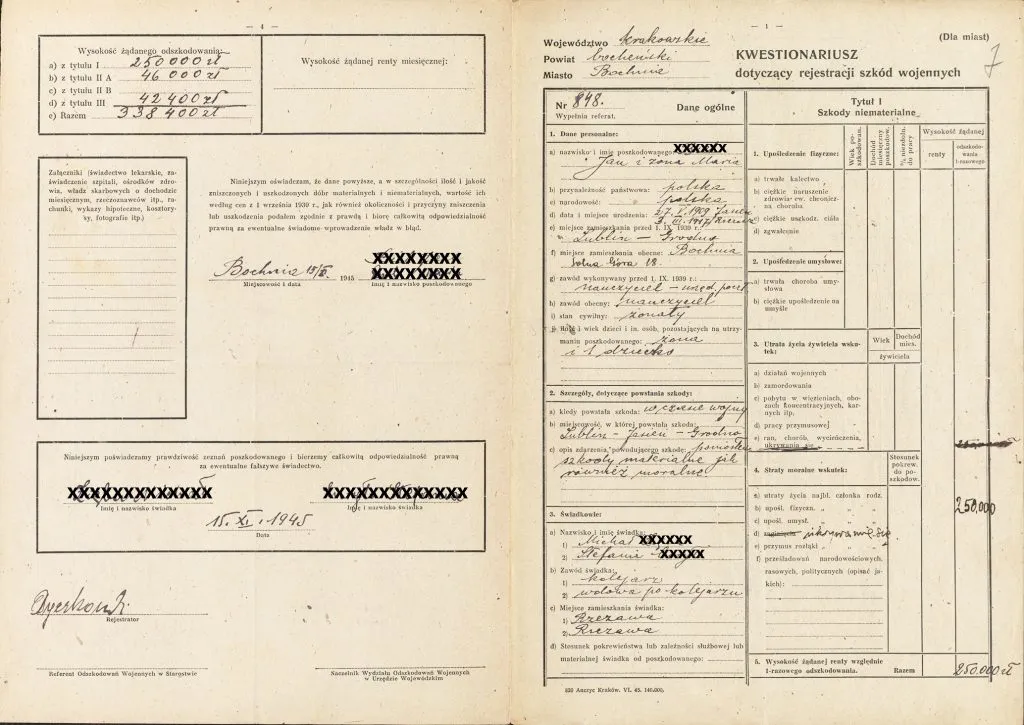 — 4 —
Wysokość żądanego odszkodowania:
a) z tytułu I 250000 zł
b) z tytułu II A 46 000 zł
c) z tytułu II B
d) z tytułu III 42 400 zł
e) Razem 338 400 zł
Wysokość żądanej renty miesięcznej:
Załączniki (świadectwo lekarskie, za-
świadczenie szpitali, ośrodków zdro-
wia, władz skarbowych o dochodzie
miesięcznym, rzeczoznawców itp., ra-
chunki, wykazy hipoteczne, kosztory-
sy, fotografie itp.)
Niniejszym oświadczam, że dane powyższe, a w szczególności ilość i jakość
zniszczonych i uszkodzonych dóbr materialnych i niematerialnych, wartość ich
według cen z 1 września 1939 r., jak również okoliczności i przyczyny zniszczenia
lub uszkodzenia podałem zgodnie z prawdą i biorę całkowitą odpowiedzialność
prawną za ewentualne świadome wprowadzenie władz w błąd.
Bochnia 15/XI. 1945
XXXXXXXX
XXXXXXXX
Miejscowość i data
Imię i nazwisko poszkodowanego
Niniejszym poświadczamy prawdziwość zeznań poszkodowanego i bierzemy całkowitą odpowiedzialność prawną
za ewentualne fałszywe świadectwo.
XXXXXXXXXXXXX XXXXXXXXXXXXX
Imię i nazwisko świadka
Imię i nazwisko świadka
15. XI. 1945
Data
Rejestrator
Referent Odszkodowań Wojennych w Starostwie
Naczelnik Wydziału Odszkodowań Wojennych
w Urzędzie Wojewódzkim
— 1 —
(Dla miast)
7
Województwo krakowskie
Powiat bocheński
Miasto Bochnia
KWESTIONARIUSZ
dotyczący rejestracji szkód wojennych
Nr 848. Dane ogólne
Wypełnia referat.
1. Dane personalne:
a) nazwisko i imię poszkodowanego XXXXXX
Jan i żona Maria
b) przynależność państwowa: polska
c) narodowość: polska
d) data i miejsce urodzenia: 27. V. 1909 Jasień
3. III. 1917
e) miejsce zamieszkania przed 1. IX. 1939 r.:
Lublin — Grodno
f) miejsce zamieszkania obecne: Bochnia
Solna Góra 18.
g) zawód wykonywany przed 1. IX. 1939 r.:
nauczyciel — urzęd. poczt.
h) zawód obecny: nauczyciel
i) stan cywilny: żonaty
j) ilość i wiek dzieci i in. osób, pozostających na utrzy-
maniu poszkodowanego: żona
i 1 dziecko
2. Szczegóły, dotyczące powstania szkody:
a) kiedy powstała szkoda: w czasie wojny
b) miejscowość, w której powstała szkoda:
Lublin — Jasień — Grodno
c) opis zdarzenia, powodującego szkodę: poniosłem
szkody materialne jak
również moralne.
3. Świadkowie:
a) Nazwisko i imię świadka:
1) Michał XXXXXX
2) Stefania XXXXX
b) Zawód świadka:
1) kolejarz
2) wdowa po kolejarzu
c) Miejsce zamieszkania świadka:
1) Rzezawa
2) Rzezawa
d) Stosunek pokrewieństwa lub zależności służbowej lub
materialnej świadka od poszkodowanego:
Tytuł I
Szkody niematerialne
Wiek po-
szkodowan.
Dochód
miesięczny
poszkodow.
% niezdoln.
do pracy
Wysokość żądanej
renty
odszkodo-
wania
1-razowego
1. Upośledzenie fizyczne:
a) trwałe kalectwo
b) ciężkie naruszenie
zdrowia: ew. chronicz-
na choroba
c) ciężkie uszkodz. ciała
d) zgwałcenie
2. Upośledzenie umysłowe:
a) trwała choroba umy-
słowa
b) ciężkie upośledzenie na
umyśle
3. Utrata życia żywiciela wsku-
tek:
Wiek
Dochód
mies.
żywiciela
a) działań wojennych
b) zamordowania
c) pobytu w więzieniach, obo-
zach koncentracyjnych, kar-
nych itp.
d) pracy przymusowej
e) ran, chorób, wycieńczenia,
ukrywania się
4. Straty moralne wskutek:
Stosunek
pokrew.
do po-
szkodow.
a) utraty życia najbl. członka rodz.
b) upośl. fizyczn. „ „ „
c) upośl. umysł. „ „ „
d) zaginięcia ukrywanie się
e) przymus. rozłąki „ „
f) prześladowań narodowościowych,
rasowych, politycznych (opisać ja-
kich):
250.000
5. Wysokość żądanej renty względnie
1-razowego odszkodowania. Razem 250.000 zł
859 Anczyc Kraków. VI. 45. 140.000.